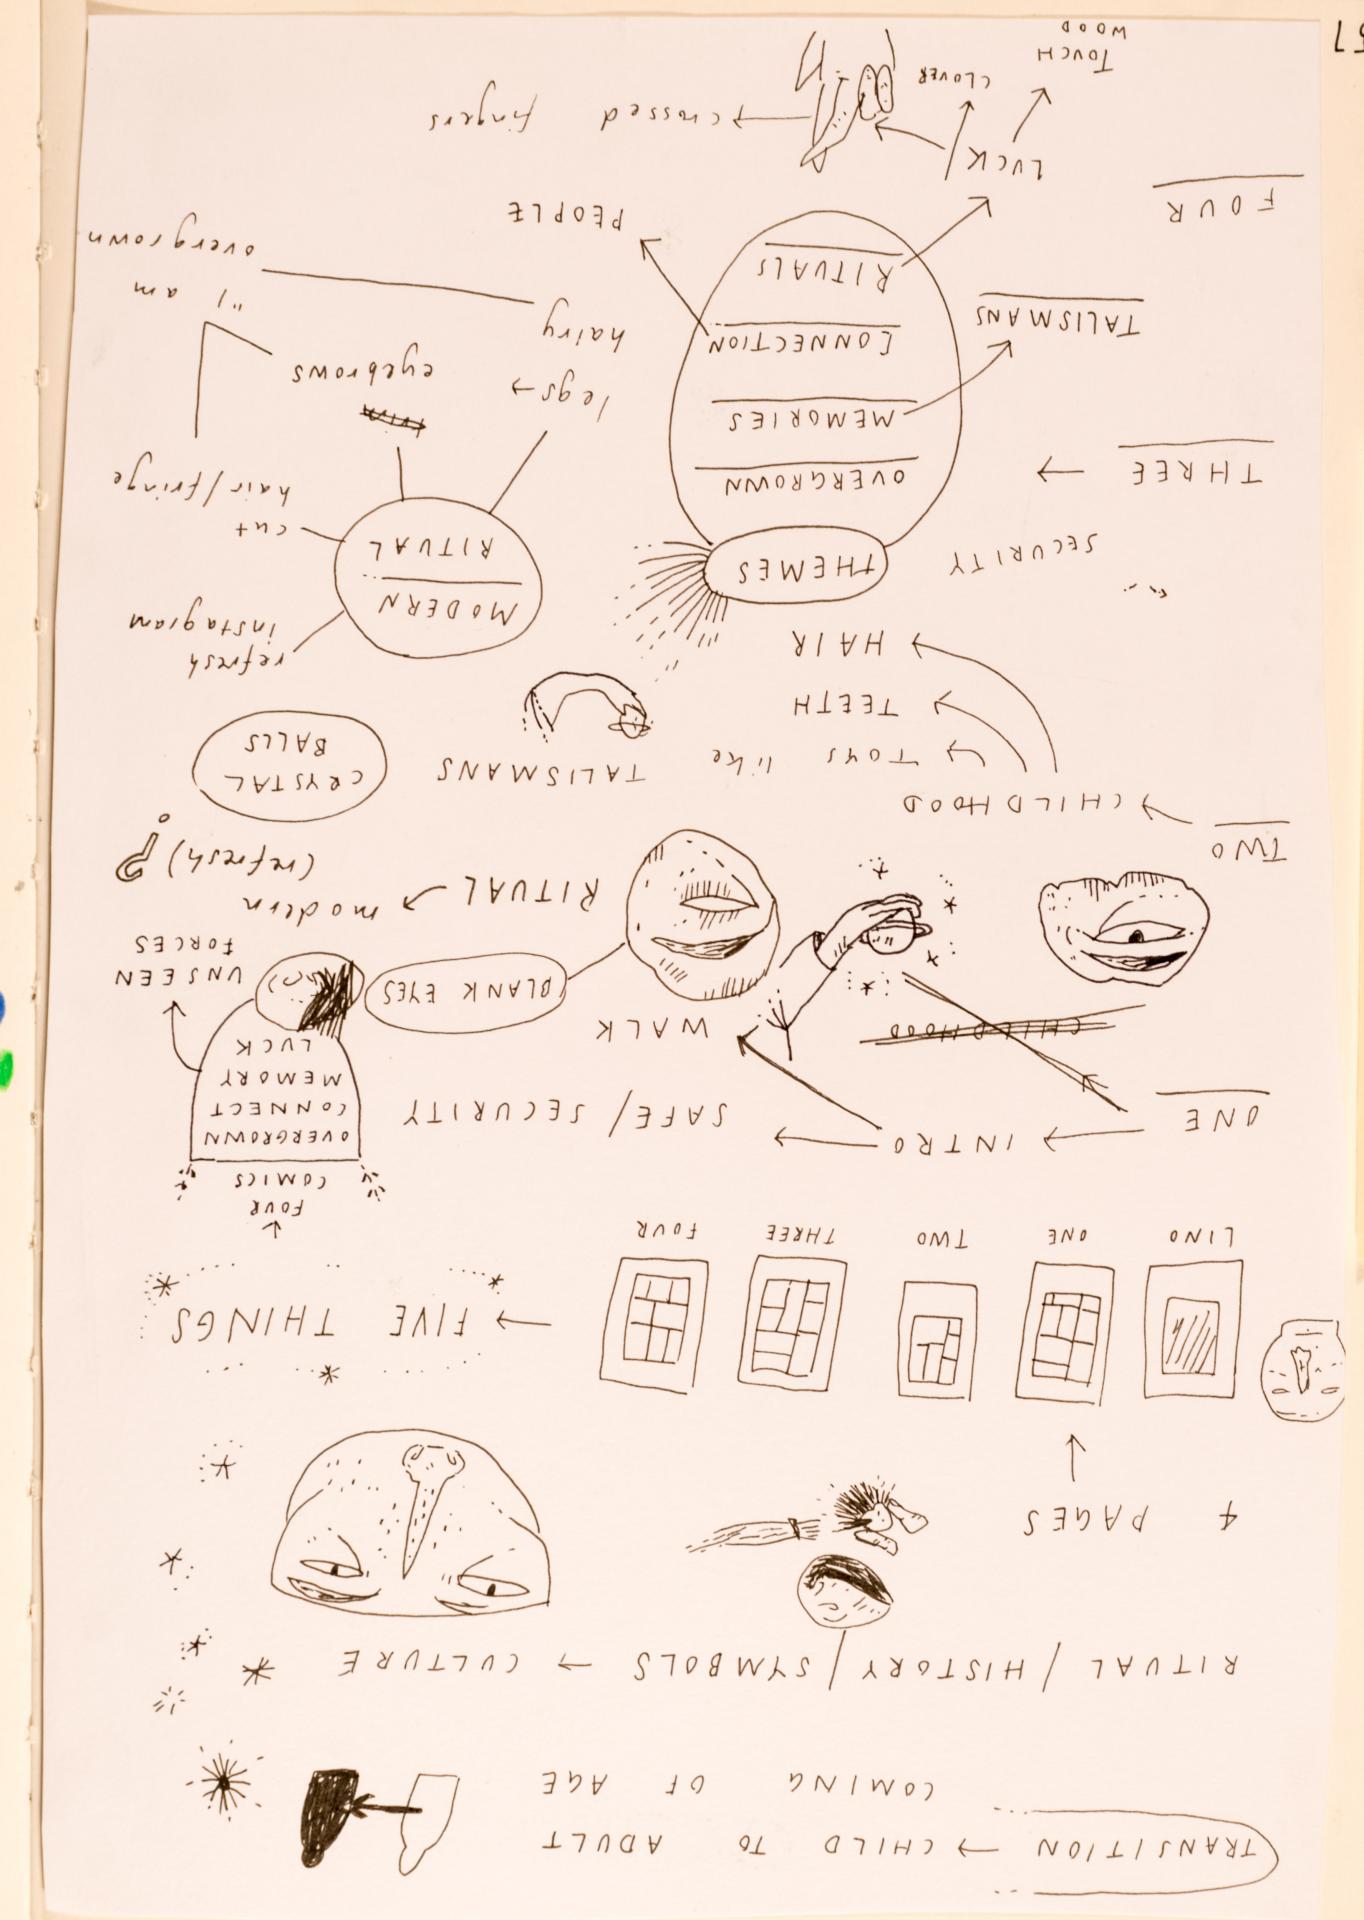 TRANSITION → CHILD TO ADULT
COMING OF AGE
RITUAL / HISTORY / SYMBOLS → CULTURE
4 PAGES
→ FIVE THINGS
LINO
ONE
TWO
THREE
FOUR
FOUR
COMICS
OVERGROWN
CONNECT
MEMORY
LUCK
UNSEEN
FORCES
ONE → INTRO → SAFE / SECURITY
CHILDHOOD
WALK
BLANK EYES
RITUAL → modern
(refresh) ?
TWO → CHILDHOOD
→ TOYS like TALISMANS
TEETH
HAIR
CRYSTAL
BALLS
SECURITY
THREE →
THEMES
OVERGROWN
MEMORIES
CONNECTION
RITUALS
TALISMANS
PEOPLE
MODERN
RITUAL
refresh
instagram
cut
hair/fringe
eyebrows
legs →
hairy
"I am
overgrown
FOUR
LUCK
CLOVER
TOUCH
WOOD
crossed fingers